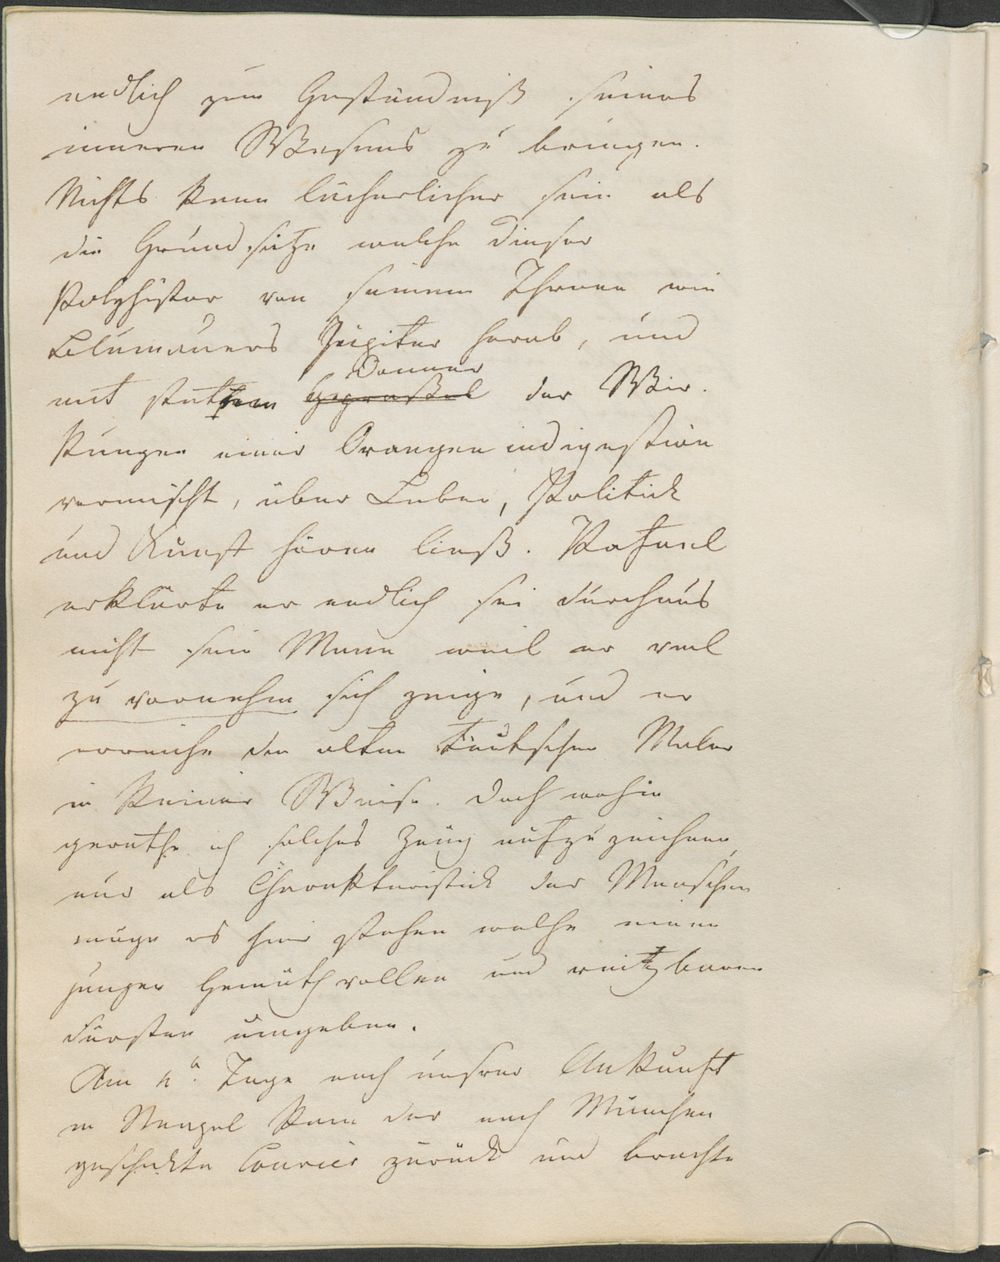 endlich zum Geständniß seines
inneren Wesens zu bringen.
Nichts kann lächerlicher sein als
die Grundsätze welche dieser
Polyhistor von seinem Throne wie
Blumauers Jupiter herab, und
mit Donner
der Wir-
kungen einer Orangenindigestion
vermischt, über Leben, Politick
und Kunst hören ließ. Rafael
erklärte er endlich sei durchaus
nicht sein Mann weil er viel
zu vornehm sich zeige, und er
erreiche die alten teutschen Maler
in keiner Weise. Doch wohin
gerathe ich solches Zeug aufzuzeichnen,
nur als Charakteristick der Menschen
möge es hier stehen welche einen
jungen Gemüthvollen und reitzbaren
Fürsten umgeben.
Am Tage nach unsrer Ankunft
in Neapel kam der nach München
geschickte Courier zurück und brachte